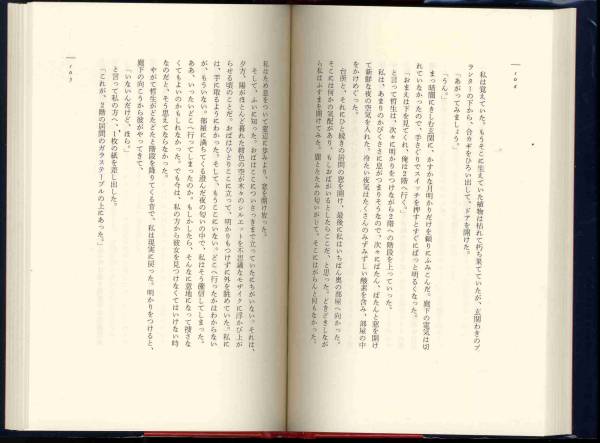 104
私は覚えていた。もうそこに生えていた植物は枯れて朽ち果てていたが、玄関わきのプ
ランターの下から、合カギをひろい出して、ドアを開けた。
「あがってみましょう。」
「うん。」
まっ暗闇にきしむ玄関に、かすかな月明かりだけを頼りにふみこんだ。廊下の電気は切
れていなかったので、手さぐりでスイッチを押すとすぐにぱっと明るくなった。
「おまえは下を見てくれ、俺は2階へ行く。」
と言って哲生は、次々に明かりをつけながら2階への階段を上っていった。
私は、あまりのかびくささに息がつまりそうなので、次々にばたん、ばたんと窓を開け
て新鮮な夜の空気を入れた。冷たい夜気はたくさんのみずみずしい酸素を含み、部屋の中
をかけめぐった。
台所と、それにひと続きの居間の窓を開け、最後に私はいちばん奥の部屋へ向かった。
そこには何かの気配があり、もしおばがいるとしたらここだ、と思った。どきどきしなが
ら私はふすまを開けてみた。闇とたたみの匂いがして、そこにはがらんと何もなかった。
私はため息をついて窓辺に歩みより、窓を開け放った。
そして、ふいに知った。おばはここについさっきまで立っていたにちがいない。それは、
夕方、陽がほとんど暮れた紺色の空が木々のシルエットを不思議なモザイクに浮かび上が
らせる頃のことだ。おばはひとりここに立って、明かりもつけずに外を眺めていた。私に
は、手に取るようにわかった。そして、もうここにいない。どこへ行ったかはわからない
が、もういない。部屋に満ちてくる澄んだ夜の匂いの中で、私はそう確信してしまった。
ああ、いったいどこへ行ってしまったのか。もしかしたら、そんなに意地になって捜さな
くてもよいのかもしれなかった。でも今は、私の方から彼女を見つけなくてはいけない時
なのだと、そう思えてならなかった。
やがて哲生がどたどたと階段を降りてくる音で、私は現実に戻った。明かりをつけると、
廊下の向こうから彼がやってきて、
「いないんだけど、ほら。」
と言って私の方へ、1枚の紙を差し出した。
「これが、2階の居間のガラステーブルの上にあった。」
105